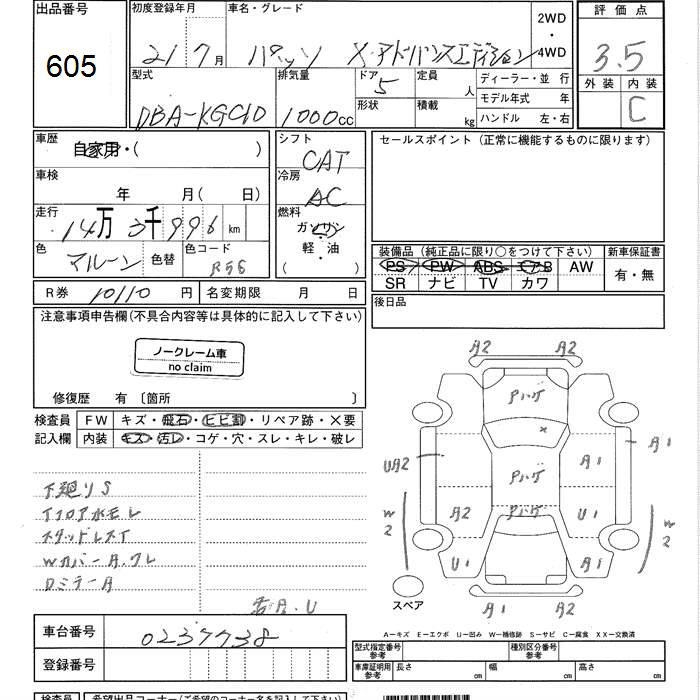 出品番号 初度登録年月 車名・グレード 2WD・4WD 評価点
605 21 7月 パッソ X・アドバンスエディション 3.5
型式 排気量 ドア 5 定員 人 ディーラー・並行 外装 内装
形状 積載 kg モデル年式 年 C
DBA-KGC10 1000cc ハンドル 左・右
車歴 自家用・( ) シフト CAT セールスポイント(正常に機能するものに限ります)
車検 年 月(日) 冷房 AC
走行 14万3千996km 燃料 ガソリン 軽・油 ( )
色 マルーン 色替 色コード R56
装備品(純正品に限り○をつけて下さい) 新車保証書
PS PW ABS エアB AW 有・無
SR ナビ TV カワ
R券 10110円 名変期限 月 日 後日品
注意事項申告欄(不具合内容等は具体的に記入して下さい)
ノークレーム車
no claim
修復歴 有〔箇所 〕
検査員記入欄 FW キズ・飛石・ヒビ割・リペア跡・×要
内装 キズ・汚レ・コゲ・穴・スレ・キレ・破レ
下廻りS
スタッドレス
WカバーA.ワレ
DミラーA
A2 A2
Pハゲ
×
A1
UA2 Pハゲ A1
W2 A2 Pハゲ U1 W2
U1 A1
スペア
A1 A2
A U
車台番号 0237738
登録番号
A-キズ E-エクボ U-凹み W-補修跡 S-サビ C-腐食 XX-交換済
型式指定番号 参考 種別区分番号 参考
車庫証明用 参考 長さ cm 幅 cm 高さ cm
検査員 希望出品コーナー(ご希望のコーナー名を記入して下さい)